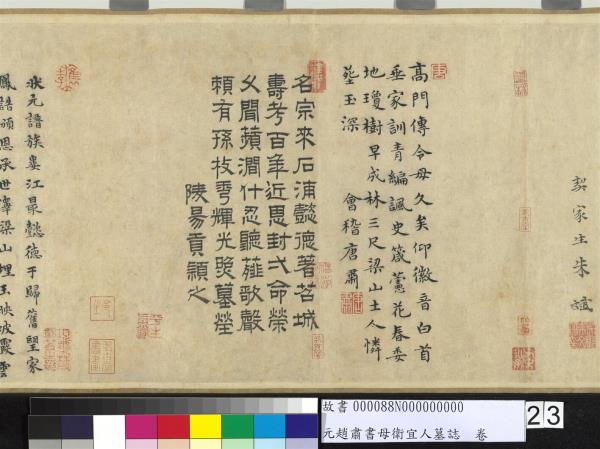 契家生朱
高門傳令母久矣仰徽音白首
垂家訓青編諷史箴蕙花春委
地瓊樹早成林三尺梁山土人憐
玉深 會稽唐肅
名宗來石浦懿德著苕城
壽考百年近恩封弌命榮
久聞蘋澗什忍聽薤歌聲
賴有孫枝秀輝光照墓塋
陵昜貢穎之
狀元譜族婁江最懿德于歸舊望家
鳳誥頒恩承世澤梁山埋玉映坡霞雲
故書 000088N000000000
元趙肅書母衛宜人墓誌 卷
23